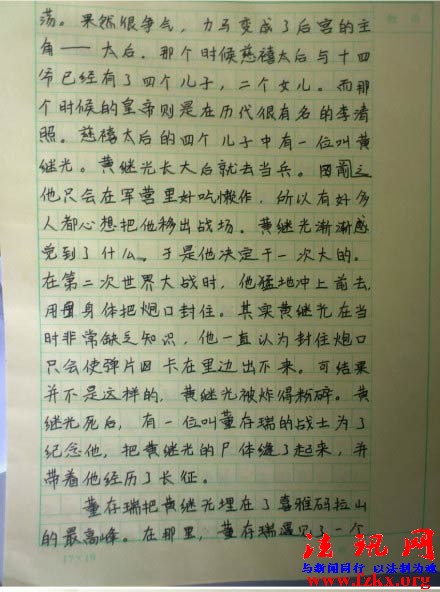 荡。果然很争气，力马变成了后宫的主
角——太后。那个时候慈禧太后与十四
爷已经有了四个儿子，二个女儿。而那
个时候的皇帝则是在历代很有名的李清
照。慈禧太后的四个儿子中有一位叫黄
继光。黄继光长大后就去当兵。因
他只会在军营里好吃懒作，所以有好多
人都心想把他移出战场。黄继光渐渐感
觉到了什么。于是他决定干一次大的。
在第二次世界大战时，他猛地冲上前去，
用身体把炮口封住。其实黄继光在当
时非常缺乏知识，他一直认为封住炮口
只会使弹片卡在里边出不来。可结果
并不是这样的，黄继光被炸得粉碎。黄
继光死后，有一位叫董存瑞的战士为了
纪念他，把黄继光的尸体缝了起来，并
带着他经历了长征。
董存瑞把黄继光埋在了喜雅码拉山
的最高峰。在那里，董存瑞遇见了一个
法讯网
与新闻同行 以法制为魂
www.fzkx.org